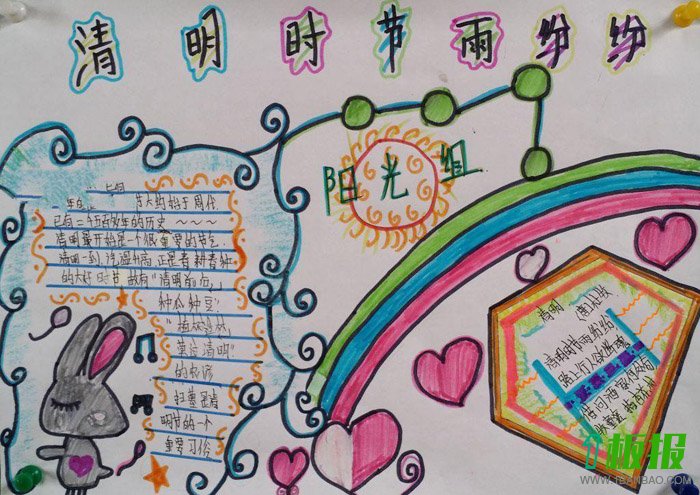 清明时节雨纷纷
阳光组
节大约始于周代
已有二千五百多年的历史
清明最开始是一个很重要的节气
清明一到气温升高正是春耕春种
的大好时节故有"清明前后，
种瓜种豆"
"植树造林，
莫过清明"
的农谚
扫墓是清
明节的一个
重要习俗
清明 (唐)杜牧
清明时节雨纷纷
路上行人欲断魂
借问酒家何处有
牧童
板报
WWW.1BANBAO.COM